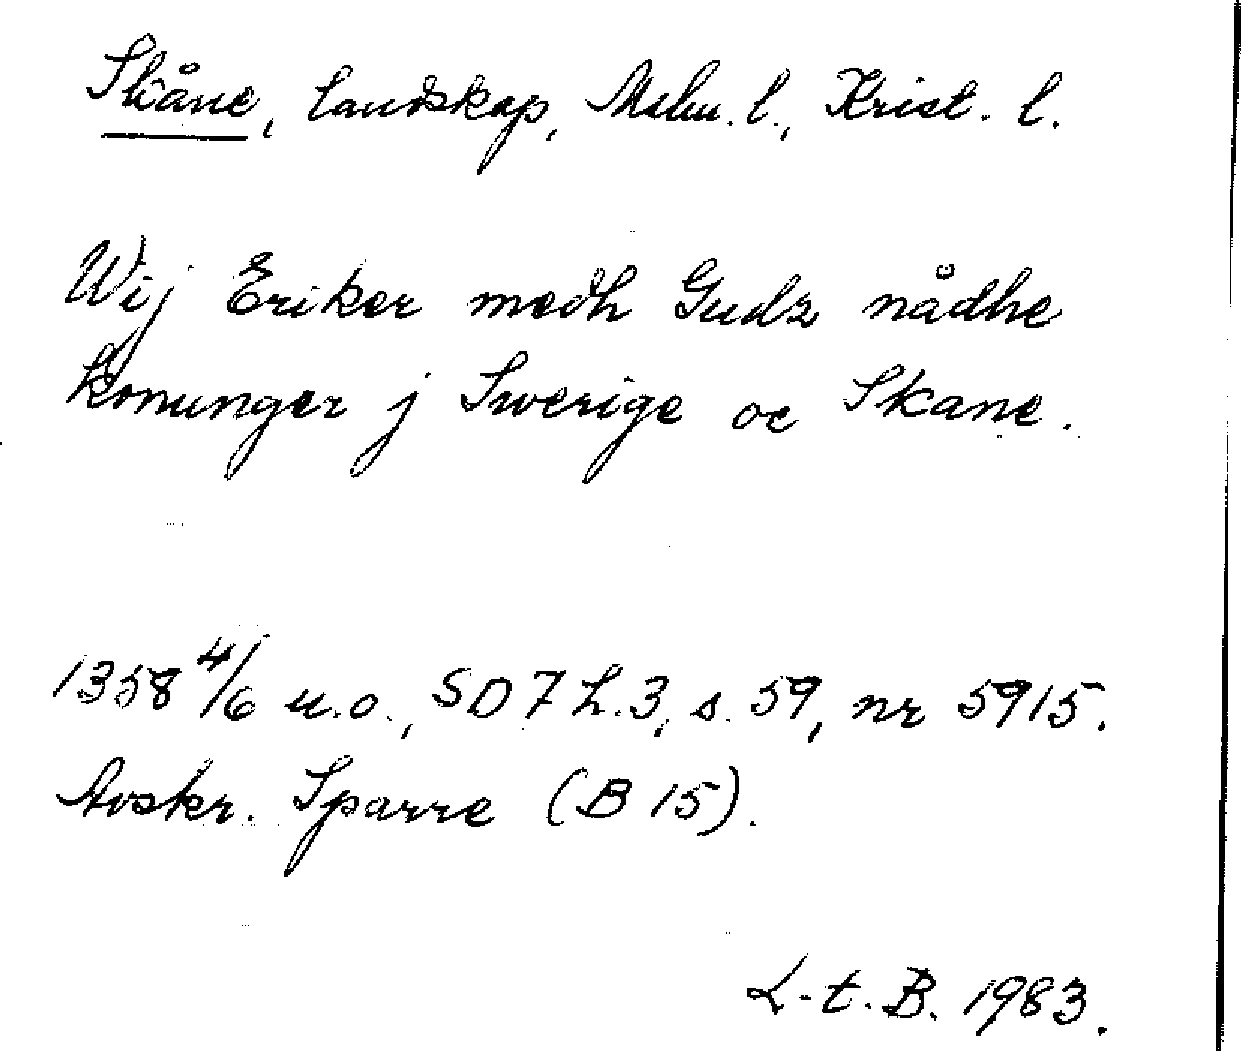 Skåne, landskap, Malm. l., Krist. l.
Wij Eriker medh Gudz nådhe
konunger j Swerige oc Skane.
1358 4/6 u.o., SD 7 h.3, s. 59, nr 5915.
Avskr. Sparre (B 15).
L-t. B. 1983.